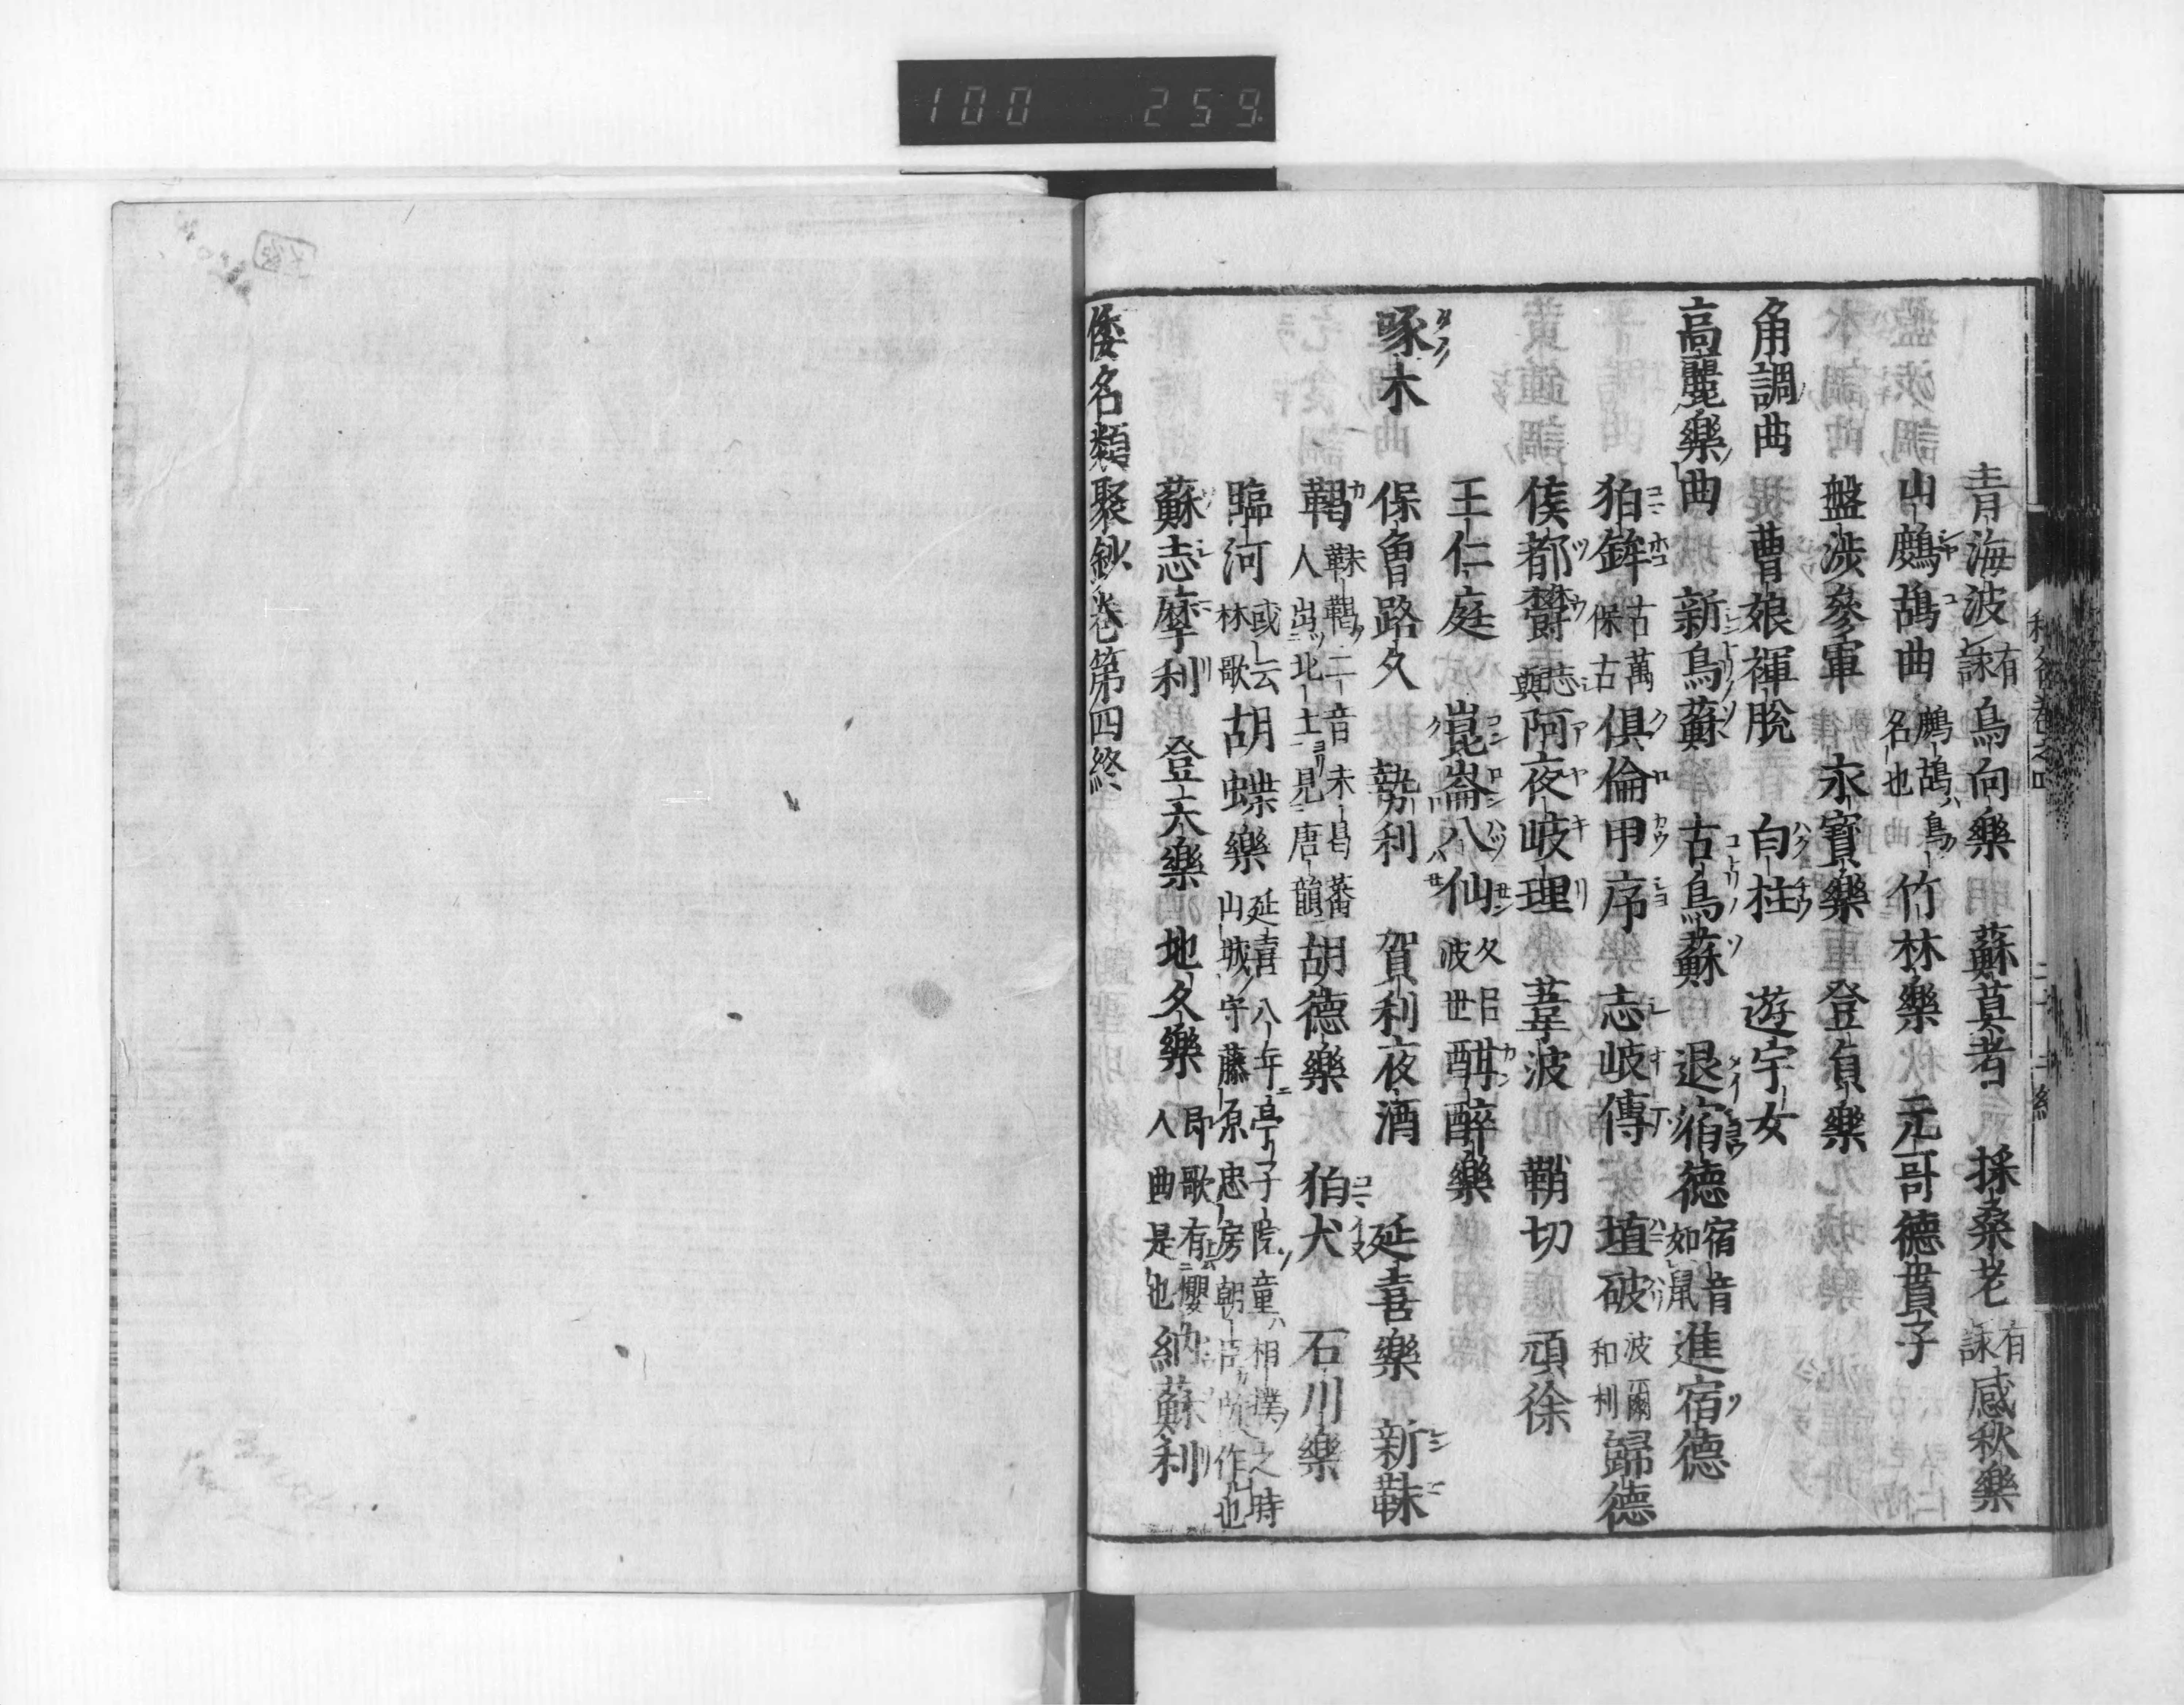 100 259
青海波有詠 鳥向樂 蘇莫者 採桑老有詠 感秋樂
山鷓鴣曲鷓鴣ハ鳥ノ名也 竹林樂 元哥 德貴子
盤渉參軍 永寶樂 登貞樂
角調曲 曹娘褌脫 白柱 遊宇女
高麗樂曲 新鳥蘇 古鳥蘇 退宿德宿音如鼠 進宿德
狛鉾古萬保古 俱倫甲序 志岐傳 埴破波爾和利 歸德
俟都贊志與 阿夜岐理 葦波 鞘切 頑徐
王仁庭 崑崙八仙久呂波世 酣醉樂
啄木 保曽路久 勢利 賀利夜酒 延喜樂 新靺
鞨靺鞨ノ二音未昌蕃人出ツ北土ヨリ見唐韻 胡德樂 狛犬 石川樂
臨河或云林歌 胡蝶樂延喜八年亭子院ノ童ハ相撲ノ之時山城ノ守藤原忠房朝臣ノ所作也
蘇志摩利 登天樂 地久樂即歌有櫻人曲是也 納蘇利
倭名類聚鈔卷第四終